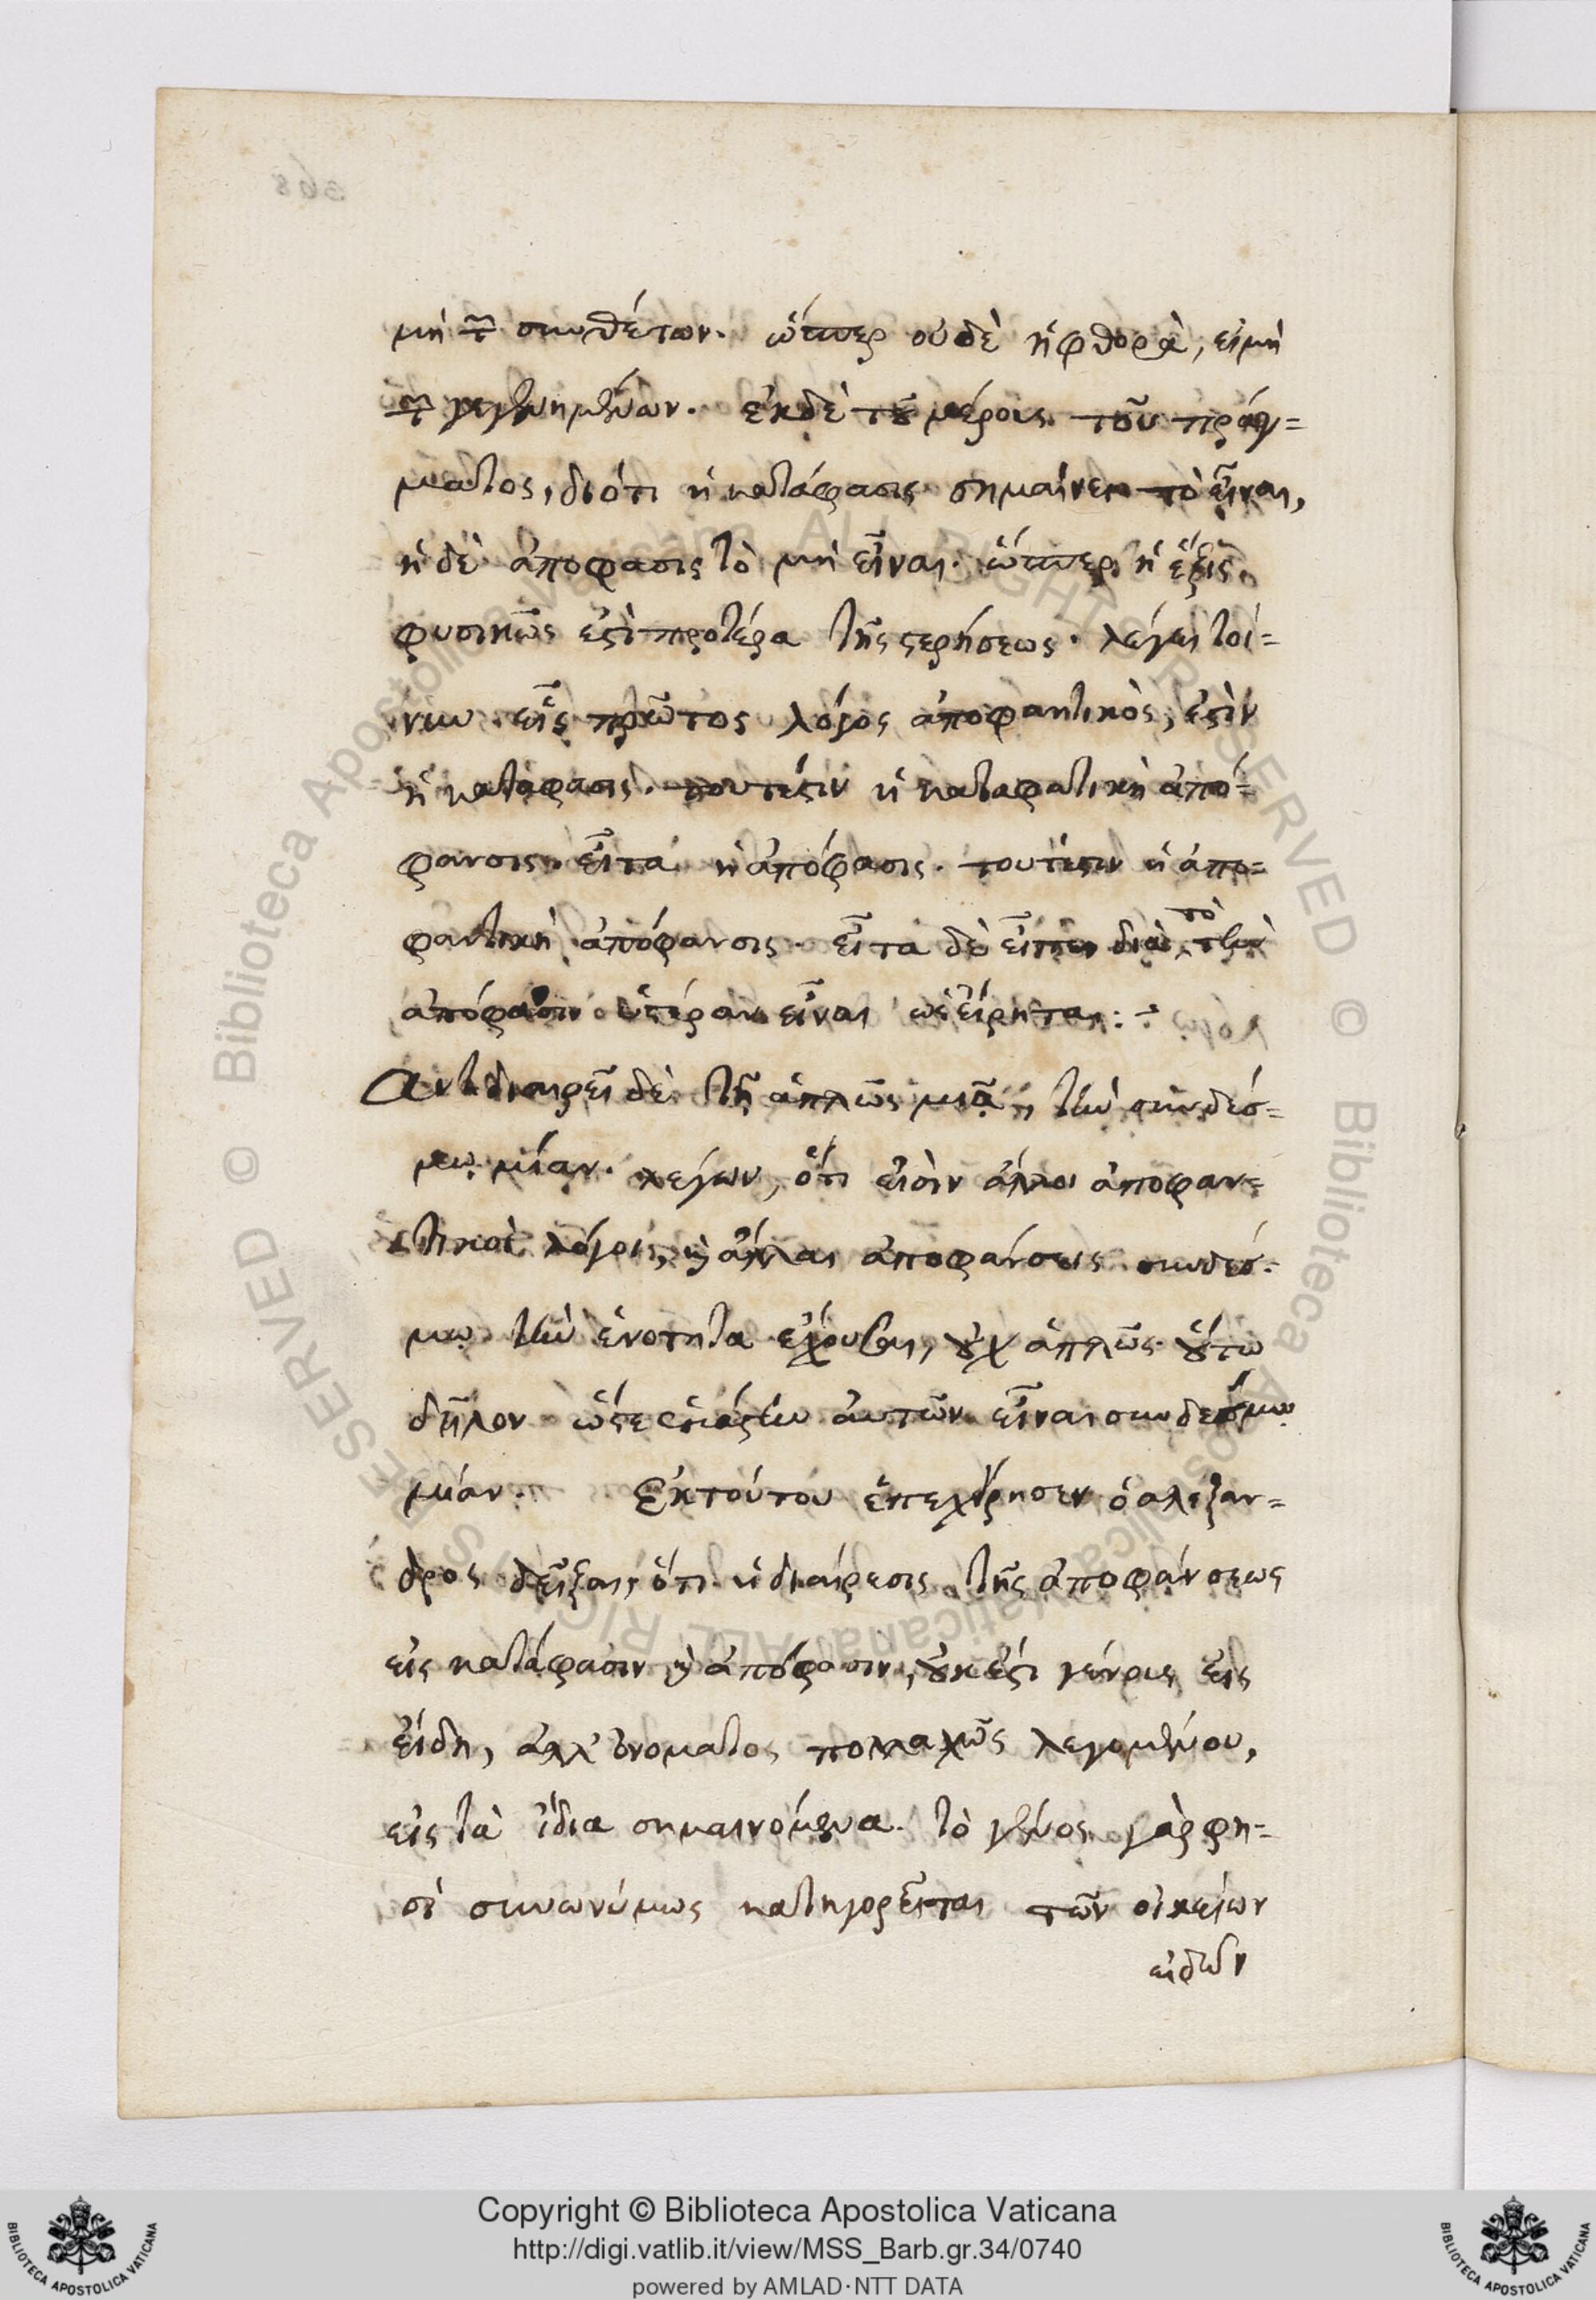 μὴ τῶν συνθέτων. ὥσπερ οὐδὲ ἡ φθορὰ, εἰμὴ
τῶν γεγενημένων. ἐκ δὲ τοῦ μέρους τοῦ πράγ=
ματος, διότι ἡ κατάφασις σημαίνει τὸ εἶναι,
ἡ δὲ ἀπόφασις τὸ μὴ εἶναι. ὥσπερ ἡ ἕξις
φυσικῶς ἐστὶ προτέρα τῆς στερήσεως. λέγει τοί=
νυν εἷς πρῶτος λόγος ἀποφαντικὸς, ἐστὶν
ἡ κατάφασις. τουτέστιν ἡ καταφατικὴ ἀπό=
φανσις. εἶτα ἡ ἀπόφασις. τουτέστιν ἡ ἀπο=
φαντικὴ ἀπόφανσις. εἶτα δὲ εἶπεν διὰ τὸ τὴν
ἀπόφασιν ὑστέραν εἶναι ὡς εἴρηται:
Αντιδιαιρεῖ δὲ τῇ ἁπλῶς μιᾷ, τὴν συνδέσ=
μῳ μίαν. λέγων, ὅτι εἰσὶν ἄλλοι ἀποφαν=
τικοὶ λόγοι, καὶ ἄλλαι ἀποφάνσεις συνδέσ=
μῳ τὴν ἑνότητα ἔχουσαι, οὐχ ἁπλῶς. οὕτω
δῆλον ὥστε ἑκάστην αὐτῶν εἶναι συνδέσμῳ
μίαν. Εκ τούτου ἐπεχείρησεν ὁ αλέξαν=
δρος δεῖξαι, ὅτι ἡ διαίρεσις τῆς ἀποφάνσεως
εἰς κατάφασιν καὶ ἀπόφασιν, οὐκ ἔστι γένους εἰς
εἴδη, ἀλλ' ὀνόματος πολλαχῶς λεγομένου,
εἰς τὰ ἴδια σημαινόμενα. τὸ γένος γὰρ φη=
σὶ συνωνύμως κατηγορεῖται τῶν οἰκείων
εἰδῶν
Copyright © Biblioteca Apostolica Vaticana
http://digi.vatlib.it/view/MSS_Barb.gr.34/0740
powered by AMLAD·NTT DATA